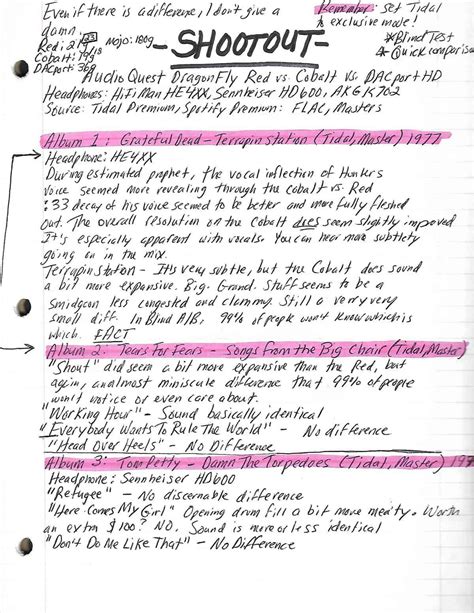 Even if there is a difference, I don't give a
damn.
Remember: set Tidal
exclusive mode!
*Blind Test
Quick comparison
Cobalt: 19g
DACport: 36g
Mojo: 180g
- SHOOTOUT -
AudioQuest DragonFly Red vs. Cobalt vs. DACportHD
Headphones: HiFiMan HE4XX, Sennheiser HD600, AKG K702
Source: Tidal Premium, Spotify Premium: FLAC, Masters
Album 1: Grateful Dead - Terrapin Station (Tidal, Master) 1977
Headphone: HE4XX
During estimated prophet, the vocal inflection of Hunters
voice seemed more revealing through the cobalt vs. Red
:33 decay of his voice seemed to be better and more fully fleshed
out. The overall resolution on the Cobalt does seem slightly improved
It's especially apparent with vocals. You can hear more subtlety
going on in the mix.
Terrapin station - It's very subtle, but the Cobalt does sound
a bit more expansive. Big. Grand. Stuff seems to be a
Smidgeon less congested and clammy. Still a very very
small diff. In Blind A/B, 99% of people won't know which is
which. FACT
Album 2: Tears For Fears - Songs from the Big Chair (Tidal, Master)
"Shout" did seem a bit more expansive than the Red, but
again, an almost miniscule difference that 99% of people
won't notice or even care about.
"Working Hour" - Sound basically identical
"Everybody Wants To Rule The World" - No Difference
"Head Over Heels" - No Difference
Album 3: Tom Petty - Damn The Torpedoes (Tidal, Master)
Headphone: Sennheiser HD600
"Refugee" - No discernable difference
"Here Comes My Girl" Opening drum fill a bit more meaty. Worth
an extra $100? NO. Sound is more or less identical
"Don't Do Me Like That" - No Difference